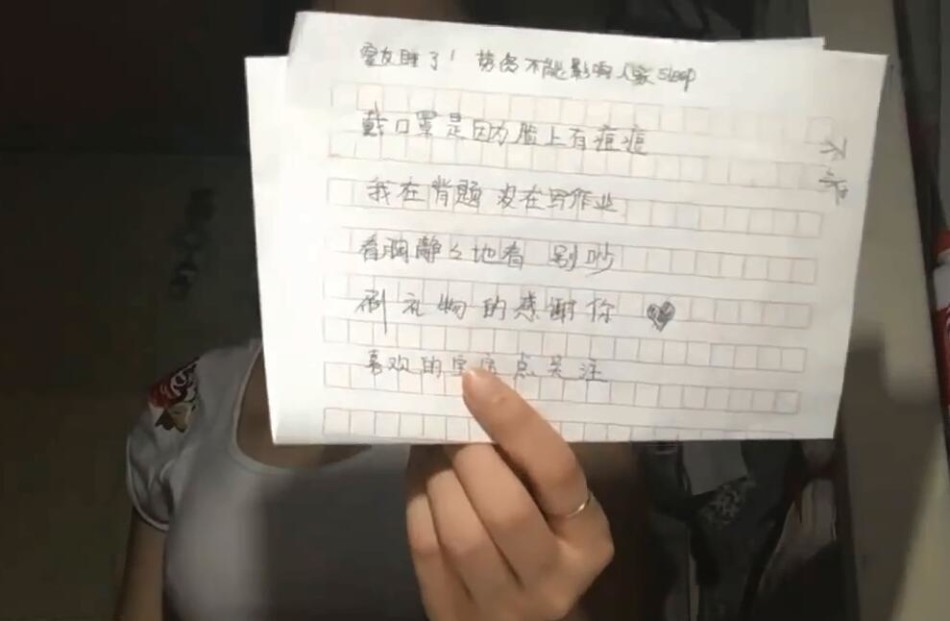 室友睡了！ 势必不能影响人家sleep
戴口罩是因为脸上有痘痘
我在背题 没在写作业
看胸静々地看 别吵
刷礼物的感谢你
喜欢的宝宝点关注